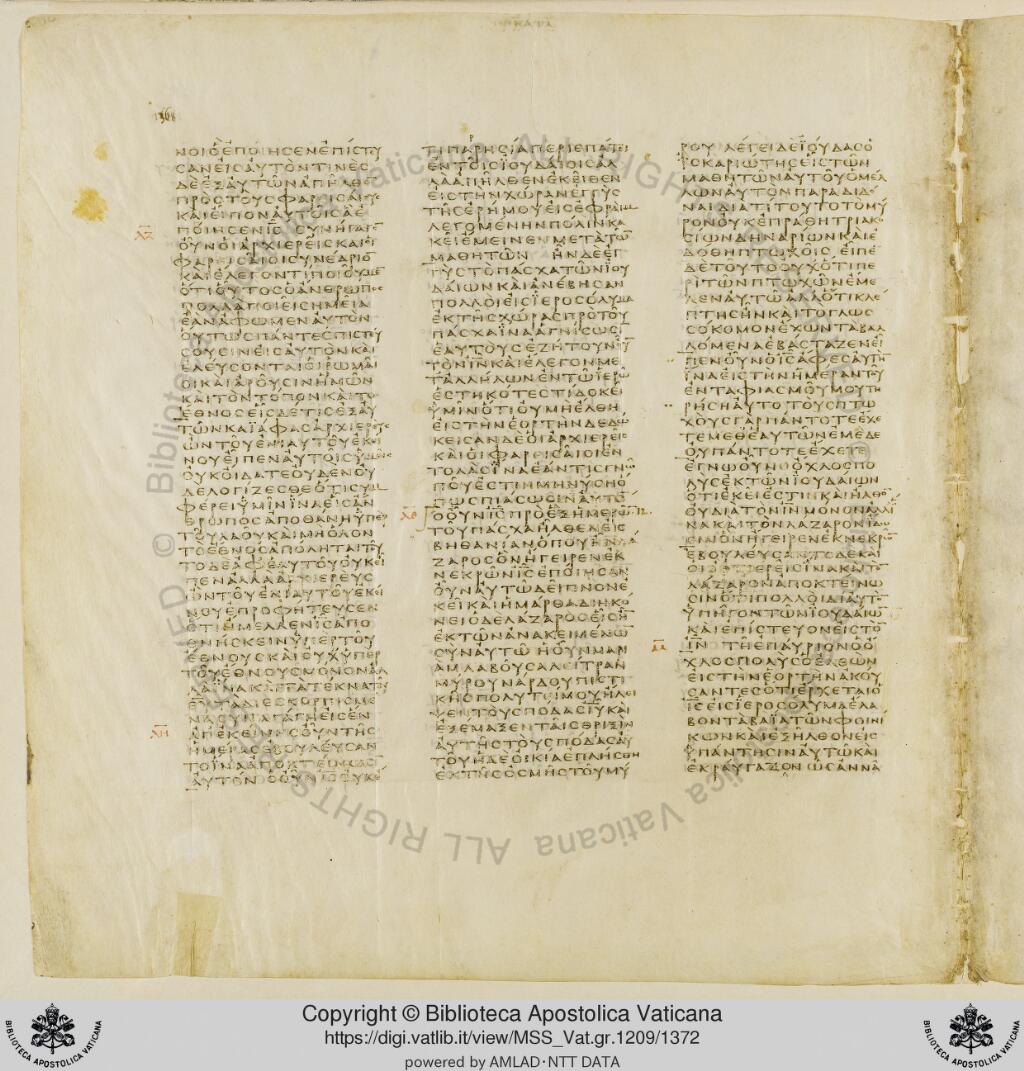 λζ
λη
λθ
μ
ΝΟΙΟΕΠΟΙΗϹΕΝΕΠΙϹΤΕΥ
ϹΑΝΕΙϹΑΥΤΟΝΤΙΝΕϹ
ΔΕΕΞΑΥΤΩΝΑΠΗΛΘΟΝ
ΠΡΟϹΤΟΥϹΦΑΡΕΙϹΑΙΟΥϹ
ΚΑΙΕΙΠΟΝΑΥΤΟΙϹΑΕ
ΠΟΙΗϹΕΝΙϹ ϹΥΝΗΓΑΓΟΝ
ΟΥΝΟΙΑΡΧΙΕΡΕΙϹΚΑΙΟΙ
ΦΑΡΕΙϹΑΙΟΙϹΥΝΕΔΡΙΟΝ
ΚΑΙΕΛΕΓΟΝΤΙΠΟΙΟΥΜΕΝ
ΟΤΙΟΥΤΟϹΟΑΝΘΡΩΠΟϹ
ΠΟΛΛΑΠΟΙΕΙϹΗΜΕΙΑ
ΕΑΝΑΦΩΜΕΝΑΥΤΟΝ
ΟΥΤΩϹΠΑΝΤΕϹΠΙϹΤΕΥ
ϹΟΥϹΙΝΕΙϹΑΥΤΟΝΚΑΙ
ΕΛΕΥϹΟΝΤΑΙΟΙΡΩΜΑΙ
ΟΙΚΑΙΑΡΟΥϹΙΝΗΜΩΝ
ΚΑΙΤΟΝΤΟΠΟΝΚΑΙΤΟ
ΕΘΝΟϹΕΙϹΔΕΤΙϹΕΞΑΥ
ΤΩΝΚΑΙΑΦΑϹΑΡΧΙΕΡΕΥϹ
ΩΝΤΟΥΕΝΙΑΥΤΟΥΕΚΕΙ
ΝΟΥΕΙΠΕΝΑΥΤΟΙϹΥΜΕΙϹ
ΟΥΚΟΙΔΑΤΕΟΥΔΕΝΟΥ
ΔΕΛΟΓΙΖΕϹΘΕΟΤΙϹΥΜ
ΦΕΡΕΙΥΜΙΝΙΝΑΕΙϹΑΝ
ΘΡΩΠΟϹΑΠΟΘΑΝΗΥΠΕΡ
ΤΟΥΛΑΟΥΚΑΙΜΗΟΛΟΝ
ΤΟΕΘΝΟϹΑΠΟΛΗΤΑΙΤΟΥ
ΤΟΔΕΑΦΕΑΥΤΟΥΟΥΚΕΙ
ΠΕΝΑΛΛΑΑΡΧΙΕΡΕΥϹ
ΩΝΤΟΥΕΝΙΑΥΤΟΥΕΚΕΙ
ΝΟΥΕΠΡΟΦΗΤΕΥϹΕΝ
ΟΤΙΗΜΕΛΛΕΝΙϹΑΠΟ
ΘΝΗϹΚΕΙΝΥΠΕΡΤΟΥ
ΕΘΝΟΥϹΚΑΙΟΥΧΥΠΕΡ
ΤΟΥΕΘΝΟΥϹΜΟΝΟΝΑΛ
ΛΑΙΝΑΚΑΙΤΑΤΕΚΝΑΤΟΥ
ΘΥΤΑΔΙΕϹΚΟΡΠΙϹΜΕ
ΝΑϹΥΝΑΓΑΓΗΕΙϹΕΝ
ΑΠΕΚΕΙΝΗϹΟΥΝΤΗϹ
ΗΜΕΡΑϹΕΒΟΥΛΕΥϹΑΝ
ΤΟΙΝΑΑΠΟΚΤΕΙΝΩϹΙ
ΑΥΤΟΝΟΟΥΝΙϹΟΥΚΕ
ΤΙΠΑΡΗϹΙΑΠΕΡΙΕΠΑΤΕΙ
ΕΝΤΟΙϹΙΟΥΔΑΙΟΙϹΑΛ
ΛΑΑΠΗΛΘΕΝΕΚΕΙΘΕΝ
ΕΙϹΤΗΝΧΩΡΑΝΕΓΓΥϹ
ΤΗϹΕΡΗΜΟΥΕΙϹΕΦΡΑΙΜ
ΛΕΓΟΜΕΝΗΝΠΟΛΙΝΚΑ
ΚΕΙΕΜΕΙΝΕΝΜΕΤΑΤΩ
ΜΑΘΗΤΩΝ ΗΝΔΕΕΓ
ΓΥϹΤΟΠΑϹΧΑΤΩΝΙΟΥ
ΔΑΙΩΝΚΑΙΑΝΕΒΗϹΑΝ
ΠΟΛΛΟΙΕΙϹΙΕΡΟϹΟΛΥΜΑ
ΕΚΤΗϹΧΩΡΑϹΠΡΟΤΟΥ
ΠΑϹΧΑΙΝΑΑΓΝΙϹΩϹΙ
ΕΑΥΤΟΥϹΕΖΗΤΟΥΝΟΥ
ΤΟΝΙΝΚΑΙΕΛΕΓΟΝΜΕ
ΤΑΛΛΗΛΩΝΕΝΤΩΙΕΡΩ
ΕϹΤΗΚΟΤΕϹΤΙΔΟΚΕΙ
ΥΜΙΝΟΤΙΟΥΜΗΕΛΘΗ
ΕΙϹΤΗΝΕΟΡΤΗΝΔΕΔΩ
ΚΕΙϹΑΝΔΕΟΙΑΡΧΙΕΡΕΙϹ
ΚΑΙΟΙΦΑΡΕΙϹΑΙΟΙΕΝ
ΤΟΛΑϹΙΝΑΕΑΝΤΙϹΓΝΩ
ΠΟΥΕϹΤΙΜΗΝΥϹΗΟ
ΠΩϹΠΙΑϹΩϹΙΝΑΥΤΟ
ΟΟΥΝΙϹΠΡΟΕΞΗΜΕΡΩ
ΤΟΥΠΑϹΧΑΗΛΘΕΝΕΙϹ
ΒΗΘΑΝΙΑΝΟΠΟΥΗΝΛΑ
ΖΑΡΟϹΟΝΗΓΕΙΡΕΝΕΚ
ΝΕΚΡΩΝΙϹΕΠΟΙΗϹΑΝ
ΟΥΝΑΥΤΩΔΕΙΠΝΟΝΕ
ΚΕΙΚΑΙΗΜΑΡΘΑΔΙΗΚΟ
ΝΕΙΟΔΕΛΑΖΑΡΟϹΕΙϹΗ
ΕΚΤΩΝΑΝΑΚΕΙΜΕΝΩ
ϹΥΝΑΥΤΩΗΟΥΝΜΑΡΙ
ΑΜΛΑΒΟΥϹΑΛΕΙΤΡΑΝ
ΜΥΡΟΥΝΑΡΔΟΥΠΙϹΤΙ
ΚΗϹΠΟΛΥΤΙΜΟΥΗΛΕΙ
ΨΕΝΤΟΥϹΠΟΔΑϹΙΥΚΑΙ
ΕΞΕΜΑΞΕΝΤΑΙϹΘΡΙΞΙΝ
ΑΥΤΗϹΤΟΥϹΠΟΔΑϹΑΥ
ΤΟΥΗΔΕΟΙΚΙΑΕΠΛΗϹΘΗ
ΕΚΤΗϹΟϹΜΗϹΤΟΥΜΥ
ΡΟΥ ΛΕΓΕΙΔΕΙΟΥΔΑϹΟ
ΙϹΚΑΡΙΩΤΗϹΕΙϹΤΩΝ
ΜΑΘΗΤΩΝΑΥΤΟΥΟΜΕΛ
ΛΩΝΑΥΤΟΝΠΑΡΑΔΙΔΟ
ΝΑΙΔΙΑΤΙΤΟΥΤΟΤΟΜΥ
ΡΟΝΟΥΚΕΠΡΑΘΗΤΡΙΑΚΟ
ϹΙΩΝΔΗΝΑΡΙΩΝΚΑΙΕ
ΔΟΘΗΠΤΩΧΟΙϹ ΕΙΠΕ
ΔΕΤΟΥΤΟΟΥΧΟΤΙΠΕ
ΡΙΤΩΝΠΤΩΧΩΝΕΜΕ
ΛΕΝΑΥΤΩΑΛΛΟΤΙΚΛΕ
ΠΤΗϹΗΝΚΑΙΤΟΓΛΩϹ
ϹΟΚΟΜΟΝΕΧΩΝΤΑΒΑΛ
ΛΟΜΕΝΑΕΒΑϹΤΑΖΕΝΕΙ
ΠΕΝΟΥΝΟΙϹΑΦΕϹΑΥΤΗ
ΙΝΑΕΙϹΤΗΝΗΜΕΡΑΝΤΟΥ
ΕΝΤΑΦΙΑϹΜΟΥΜΟΥΤΗ
ΡΗϹΗΑΥΤΟΤΟΥϹΠΤΩ
ΧΟΥϹΓΑΡΠΑΝΤΟΤΕΕΧΕ
ΤΕΜΕΘΕΑΥΤΩΝΕΜΕΔΕ
ΟΥΠΑΝΤΟΤΕΕΧΕΤΕ
ΕΓΝΩΟΥΝΟΟΧΛΟϹΠΟ
ΛΥϹΕΚΤΩΝΙΟΥΔΑΙΩΝ
ΟΤΙΕΚΕΙΕϹΤΙΝΚΑΙΗΛΘΟΝ
ΟΥΔΙΑΤΟΝΙΝΜΟΝΟΝΑΛΛΙ
ΝΑΚΑΙΤΟΝΛΑΖΑΡΟΝΙΔΩ
ϹΙΝΟΝΗΓΕΙΡΕΝΕΚΝΕΚΡΩ
ΕΒΟΥΛΕΥϹΑΝΤΟΔΕΚΑΙ
ΟΙΑΡΧΙΕΡΕΙϹΙΝΑΚΑΙΤΟ
ΛΑΖΑΡΟΝΑΠΟΚΤΕΙΝΩ
ϹΙΝΟΤΙΠΟΛΛΟΙΔΙΑΥΤΟ
ΥΠΗΓΟΝΤΩΝΙΟΥΔΑΙΩ
ΚΑΙΕΠΙϹΤΕΥΟΝΕΙϹΤΟ
ΙΝ ΤΗΕΠΑΥΡΙΟΝΟΟ
ΧΛΟϹΠΟΛΥϹΟΕΛΘΩΝ
ΕΙϹΤΗΝΕΟΡΤΗΝΑΚΟΥ
ϹΑΝΤΕϹΟΤΙΕΡΧΕΤΑΙΟ
ΙϹΕΙϹΙΕΡΟϹΟΛΥΜΑΕΛΑ
ΒΟΝΤΑΒΑΙΑΤΩΝΦΟΙΝΙ
ΚΩΝΚΑΙΕΞΗΛΘΟΝΕΙϹ
ΥΠΑΝΤΗϹΙΝΑΥΤΩΚΑΙ
ΕΚΡΑΥΓΑΖΟΝΩϹΑΝΝΑ
BIBLIOTECA APOSTOLICA VATICANA
Copyright © Biblioteca Apostolica Vaticana
https://digi.vatlib.it/view/MSS_Vat.gr.1209/1372
powered by AMLAD·NTT DATA
BIBLIOTECA APOSTOLICA VATICANA